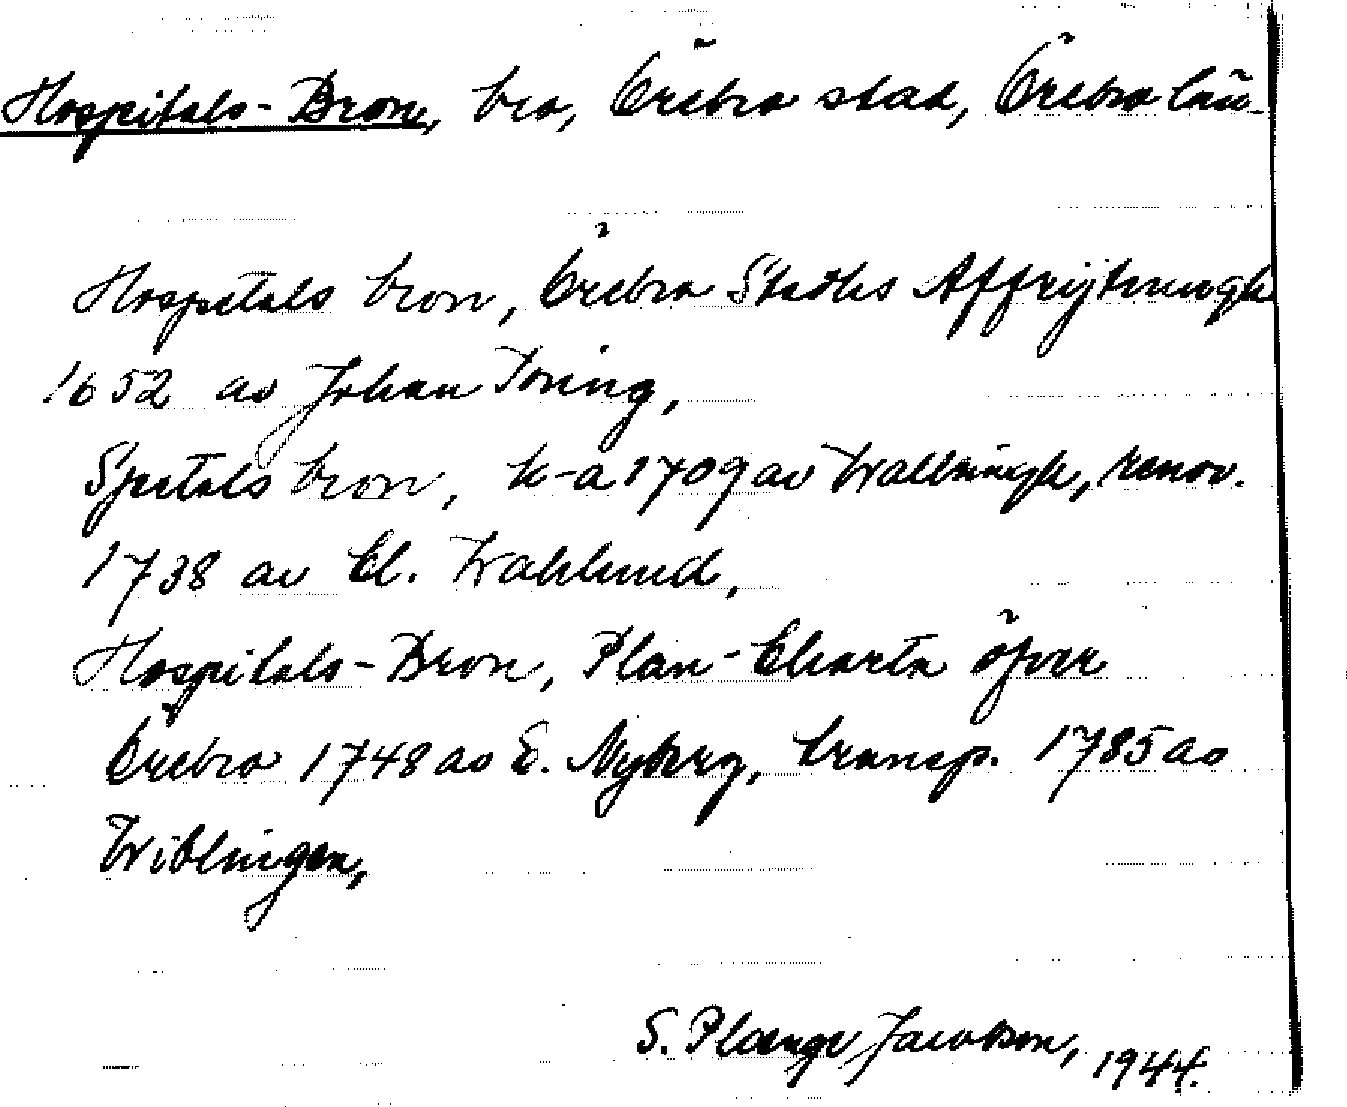 Hospitals-Bron, bro, Örebro stad, Örebro län.
Hospitals bron, Örebro Stadhs Affrijtningh
1652 av Johan Töring,
Spetals bron, k-a 1709 av Wallningh, renov.
1738 av Cl. Wahlund,
Hospitals-Bron, Plan-Charta öfver
Örebro 1748 av E. Nyberg, transp. 1785 av
Wiblingen,
S. Plænge Jacobson, 1944.